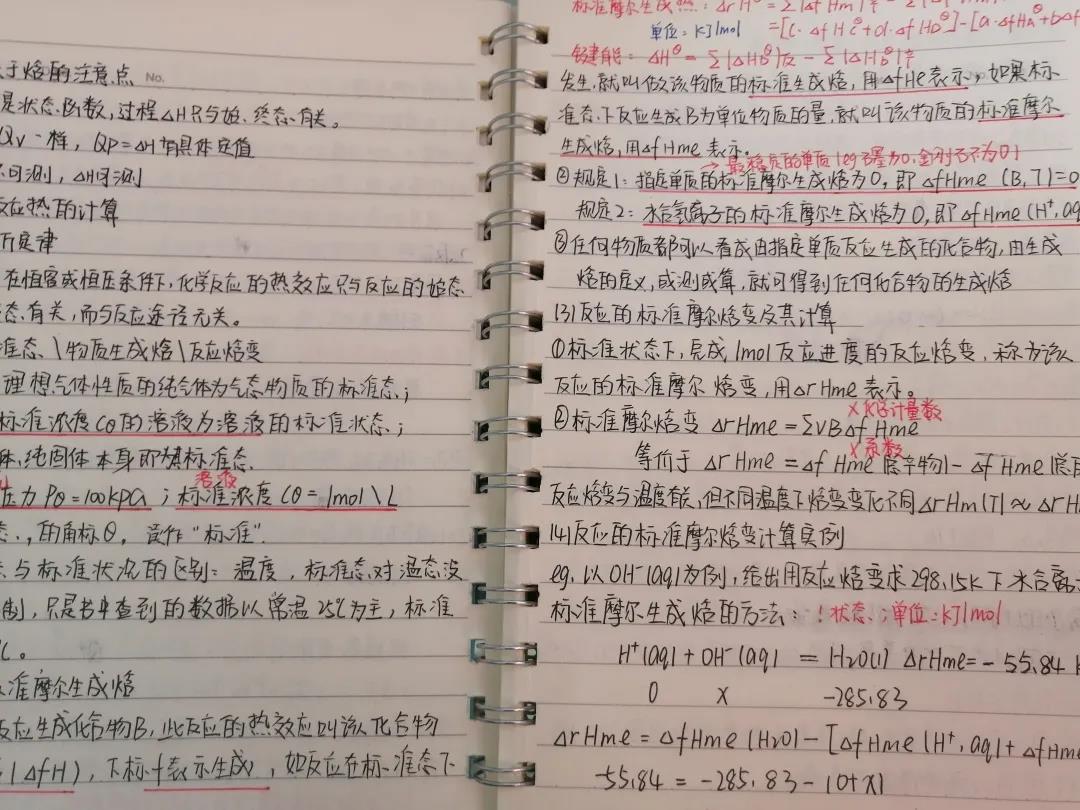 于焓的注意点 No.
是状态函数,过程△H只与始、终态有关。
Qv一样,Qp=△H有具体定值
不可测,△H可测
反应热的计算
斤定律
在恒容或恒压条件下,化学反应的热效应只与反应的始态
态有关,而与反应途径无关。
准态\物质生成焓\反应焓变
理想气体性质的纯气体为气态物质的标准态;
标准浓度Cθ的溶液为溶液的标准状态;
体,纯固体本身即其标准态.
溶液
压力Pθ=100kPa;标准浓度Cθ=1mol\L
态.,的角标θ,读作"标准".
与标准状况的区别:温度,标准态对温态没
制,只是书中查到的数据以常温25℃为主,标准
℃。
准摩尔生成焓
反应生成化合物B,此反应的热效应叫该化合物
(△fH),下标f表示生成),如反应在标准态下
标准摩尔生成热:△rHθ=Σ
单位:KJ/mol =[c·△fHcθ+d·△fHDθ]-[a·△fHAθ+b△f
键能:△Hθ=Σ|△Hbθ|反-Σ|△Hbθ|产
发生,就叫做该物质的标准生成焓,用△fHe表示,如果标
准态下反应生成B为单位物质的量,就叫该物质的标准摩尔
生成焓,用△fHme表示。
→最稳定的单质
②规定1:指定单质的标准摩尔生成焓为0,即△fHme(B,T)=0
规定2:水合氢离子的标准摩尔生成焓为0,即△fHme(H⁺,aq
③任何物质都可以看成由指定单质反应生成的化合物,由生成
焓的定义,或测或算,就可得到任何化合物的生成焓
(3)反应的标准摩尔焓变及其计算
①标准状态下,完成1mol反应进度的反应焓变,称为该
反应的标准摩尔焓变,用△rHme表示。
×化学计量数
②标准摩尔焓变△rHme=ΣVB△fHme
×系数
等价于△rHme=△fHme(生物)-△fHme
反应焓变与温度有关,但不同温度下焓变变化不同△rHm(T)≈△rH
(4)反应的标准摩尔焓变计算实例
eg.以OH⁻(aq)为例,给出用反应焓变求298.15K下水合离
标准摩尔生成焓的方法:!状态;单位:KJ/mol
H⁺(aq)+OH⁻(aq)=H2O(l) △rHme=-55.84 k
0 x -285.83
△rHme=△fHme(H2O)-[△fHme(H⁺,aq)+△fHme
-55.84=-285.83-(0+x)